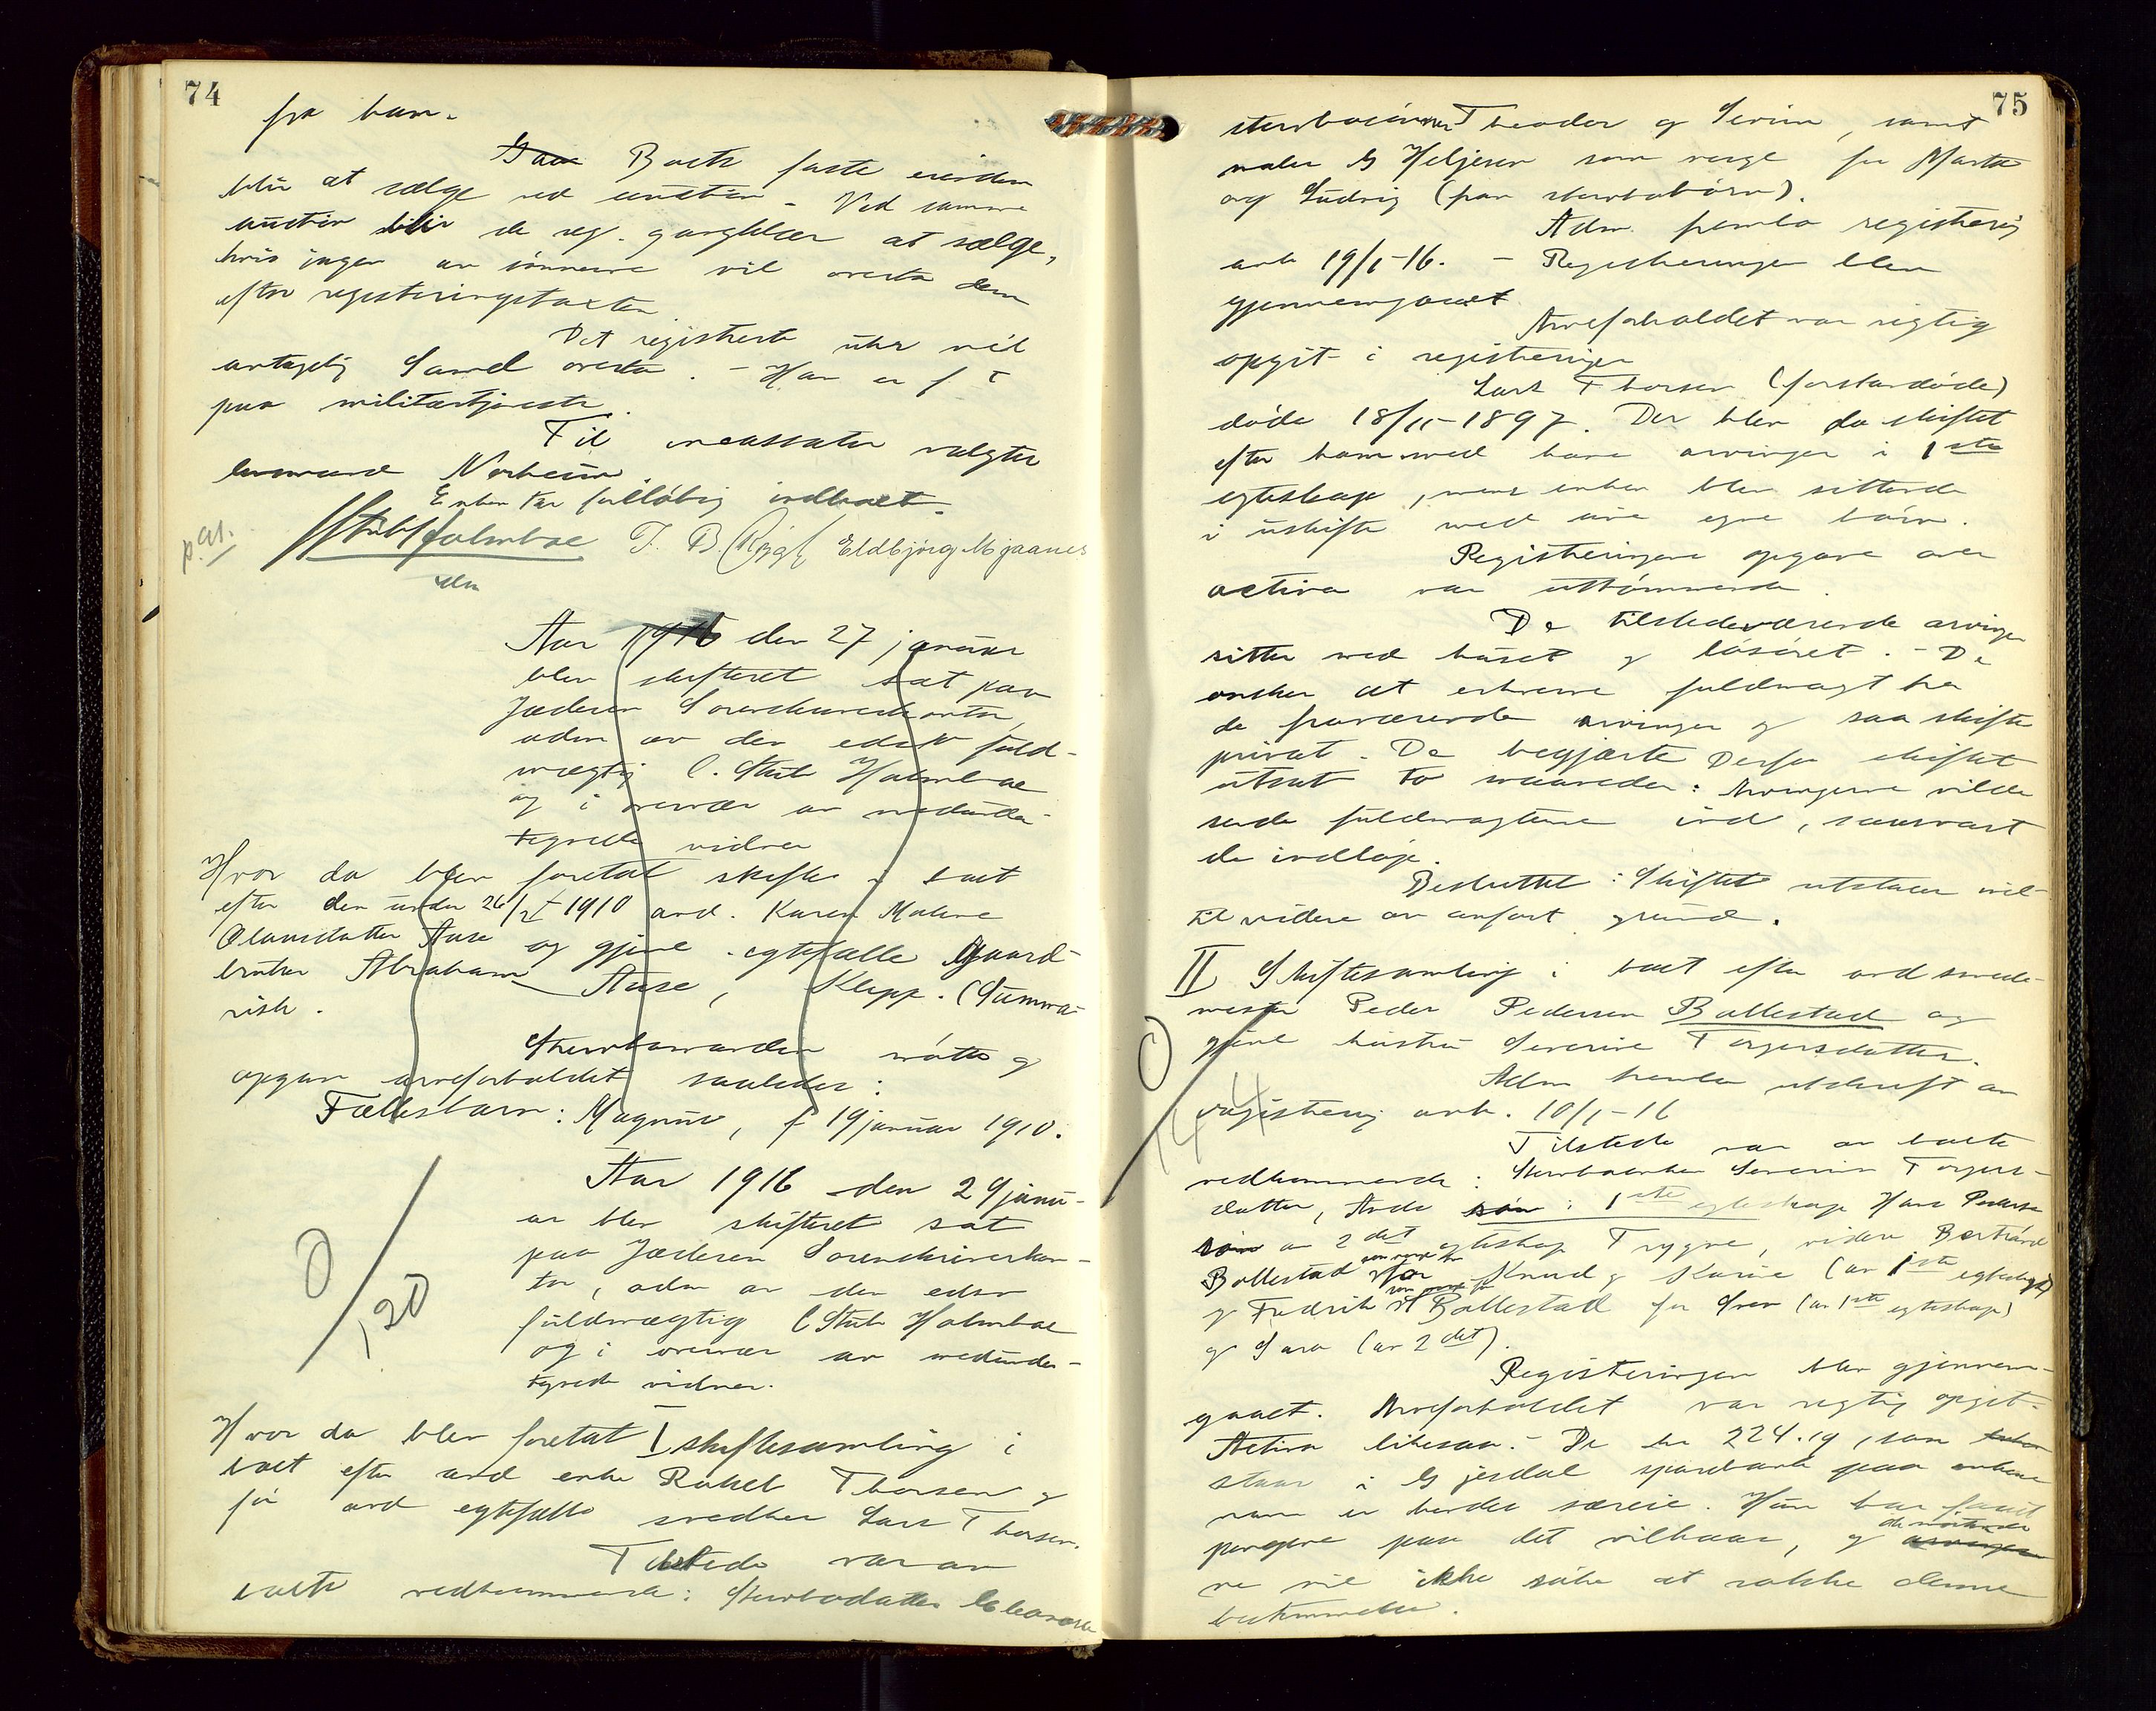 74
fra ham.
Boets faste eiendom
blir at sælge ved auction - Ved samme
auction blir de reg. gangklær at sælge,
hvis ingen av sønnerne vil overta dem
efter registreringstaxten
Det registrerte uhr vil
antagelig overta. - Han er f t
paa militærtjeneste.
Til incassator valgtes
lensmand Norheim.
Enken har forløbig indboet.
p.at. Stub Holmboe Eldbjørg Mjaanes
Aar 1916 den 27 januar
blev skifteret sat paa
Jæderen Sorenskriverkontor,
adm av den edsv fuld-
mægtig C. Stub Holmboe
og i overvær av medunder-
tegnede vidner
Hvor da blev foretat skifte i boet
efter den under 26/ 1910 avd. Karen Malene
Olausdatter Aase og gjenl. egtefælle Gaard-
bruker Abraham Aase, Klepp. (Summa-
risk.
møtte og
opgav arveforholdet saaledes:
Fællesbarn: Magnus, f 19 januar 1910.
Aar 1916 den 29 janu-
ar blev skifteret sat
paa Jæderen Sorenskriverkon-
tor, adm av den edsv
fuldmægtig C Stub Holmboe
og i overvær av medunder-
tegnede vidner.
Hvor da blev foretat I skiftesamling i
boet efter avd enke Rakel Thorsen og
før avd egtefælle Lars Thorsen.
Tilstede var av
boets vedkommende: Stervbodatter Eleanora
75
stervbosønner Theodor og Severin, samt
maler G Heljesen som verge for Marta
og Ludvig (som stervbobørn).
Adm. fremla registrering
avh 19/1-16. - Registreringen blev
gjennemgaaet.
Arveforholdet var rigtig
opgit i registreringen
Lars Thorsen (førstavdøde)
døde 18/11-1897. Der blev da skiftet
efter ham med hans arvinger i 1ste
egteskap, mens enken blev sittende
i uskifte med sine egne barn.
Registreringens opgave over
activa var uttømmende.
De tilstedeværende arvinger
sitter med huset og løsøret. - De
ønsker at erhverve fuldmagt fra
de fraværende arvinger og saa skifte
privat. De begjærte derfor skiftet
utsat to maaneder: Arvingerne vilde
sende fuldmagterne ind, saasnart
de indløp.
Besluttet: Skiftet utstaar ind-
til videre av anført grund.
II Skiftesamling i boet efter avd smede-
mester Peder Pedersen Bollestad og
gjenl hustru Severine Torgersdatter.
Adm fremla utskrift av
registrering avh. 10/1-16
Tilstede var av boets
vedkommende: Stervboenken Severine Torgers-
datter, søn i 1ste egteskap Hans Pedersen
søn av 2det egteskap Trygve, viden Bertrand
Bollestad som verge for Knud og Karine (av 1ste egteskap)
og Fredrik Bollestad som verge for Sven (av 1ste egteskap)
og Sara (av 2det).
Registreringen blev gjennem-
gaaet. Arveforholdet var rigtig opgit.
Activa likesaa. - De kr 224.19, som
staar i Gjesdal sparebank paa enkens
navn er hendes særeie. Hun har faaet
pengene paa det vilkaar, og de møtende
vil ikke søke at rokke denne
bestemmelse.